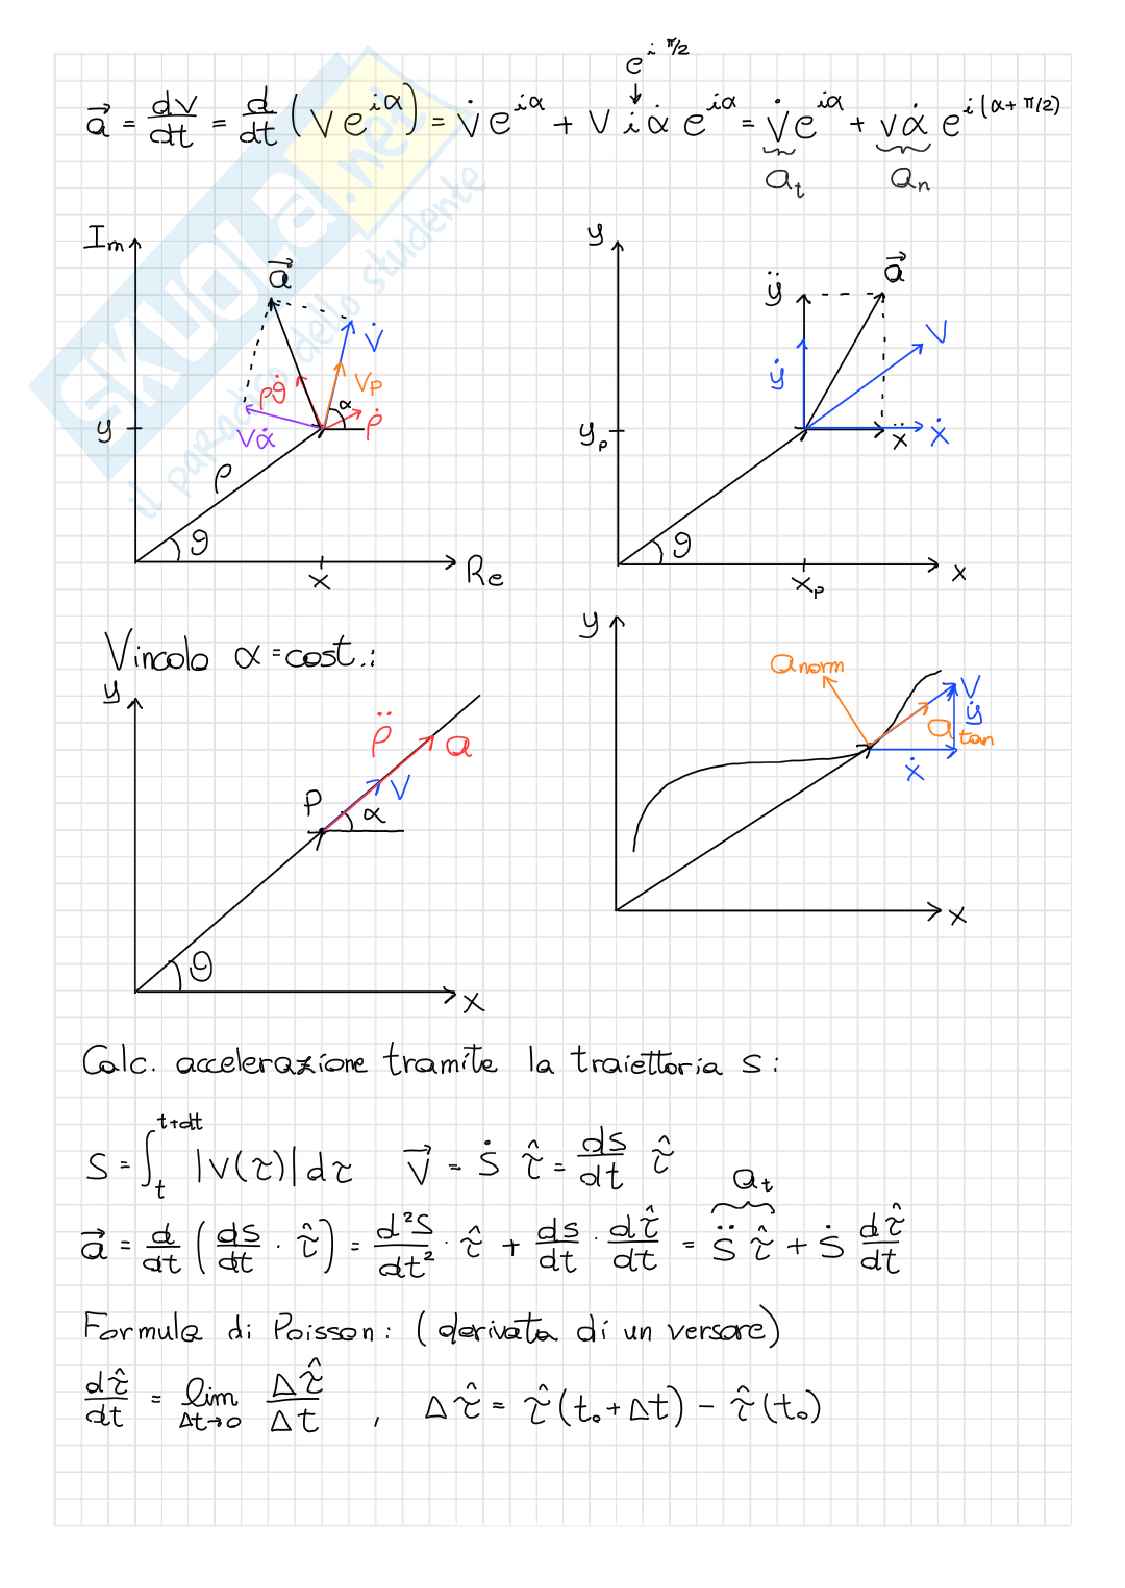 e^{i π/2}
↓
\vec{a} = \frac{dv}{dt} = \frac{d}{dt} (v e^{iα}) = \dot{v} e^{iα} + v i \dot{α} e^{iα} = \dot{v} e^{iα} + v\dot{α} e^{i(α+π/2)}
a_t a_n
Im
\vec{a}
\dot{v}
ρ\dot{ϑ}
v_p
α
\dot{ρ}
v\dot{α}
y
ρ
ϑ
x
Re
y
\vec{a}
\ddot{y}
v
\dot{y}
y_p
\ddot{x}
\dot{x}
ϑ
x_p
x
Vincolo α = cost.:
y
\ddot{ρ}
a
v
P
α
ϑ
x
y
a_norm
v
\dot{y}
a_tan
\dot{x}
x
Calc. accelerazione tramite la traiettoria s:
s = \int_t^{t+dt} |v(τ)| dτ \vec{v} = \dot{s} \hat{τ} = \frac{ds}{dt} \hat{τ}
a_t
\vec{a} = \frac{d}{dt} (\frac{ds}{dt} · \hat{τ}) = \frac{d²s}{dt²} · \hat{τ} + \frac{ds}{dt} · \frac{d\hat{τ}}{dt} = \ddot{s} \hat{τ} + \dot{s} \frac{d\hat{τ}}{dt}
Formula di Poisson: (derivata di un versore)
\frac{d\hat{τ}}{dt} = \lim_{Δt→0} \frac{Δ\hat{τ}}{Δt} , Δ\hat{τ} = \hat{τ}(t₀+Δt) − \hat{τ}(t₀)
SKUOLA.net
il paradiso dello studente